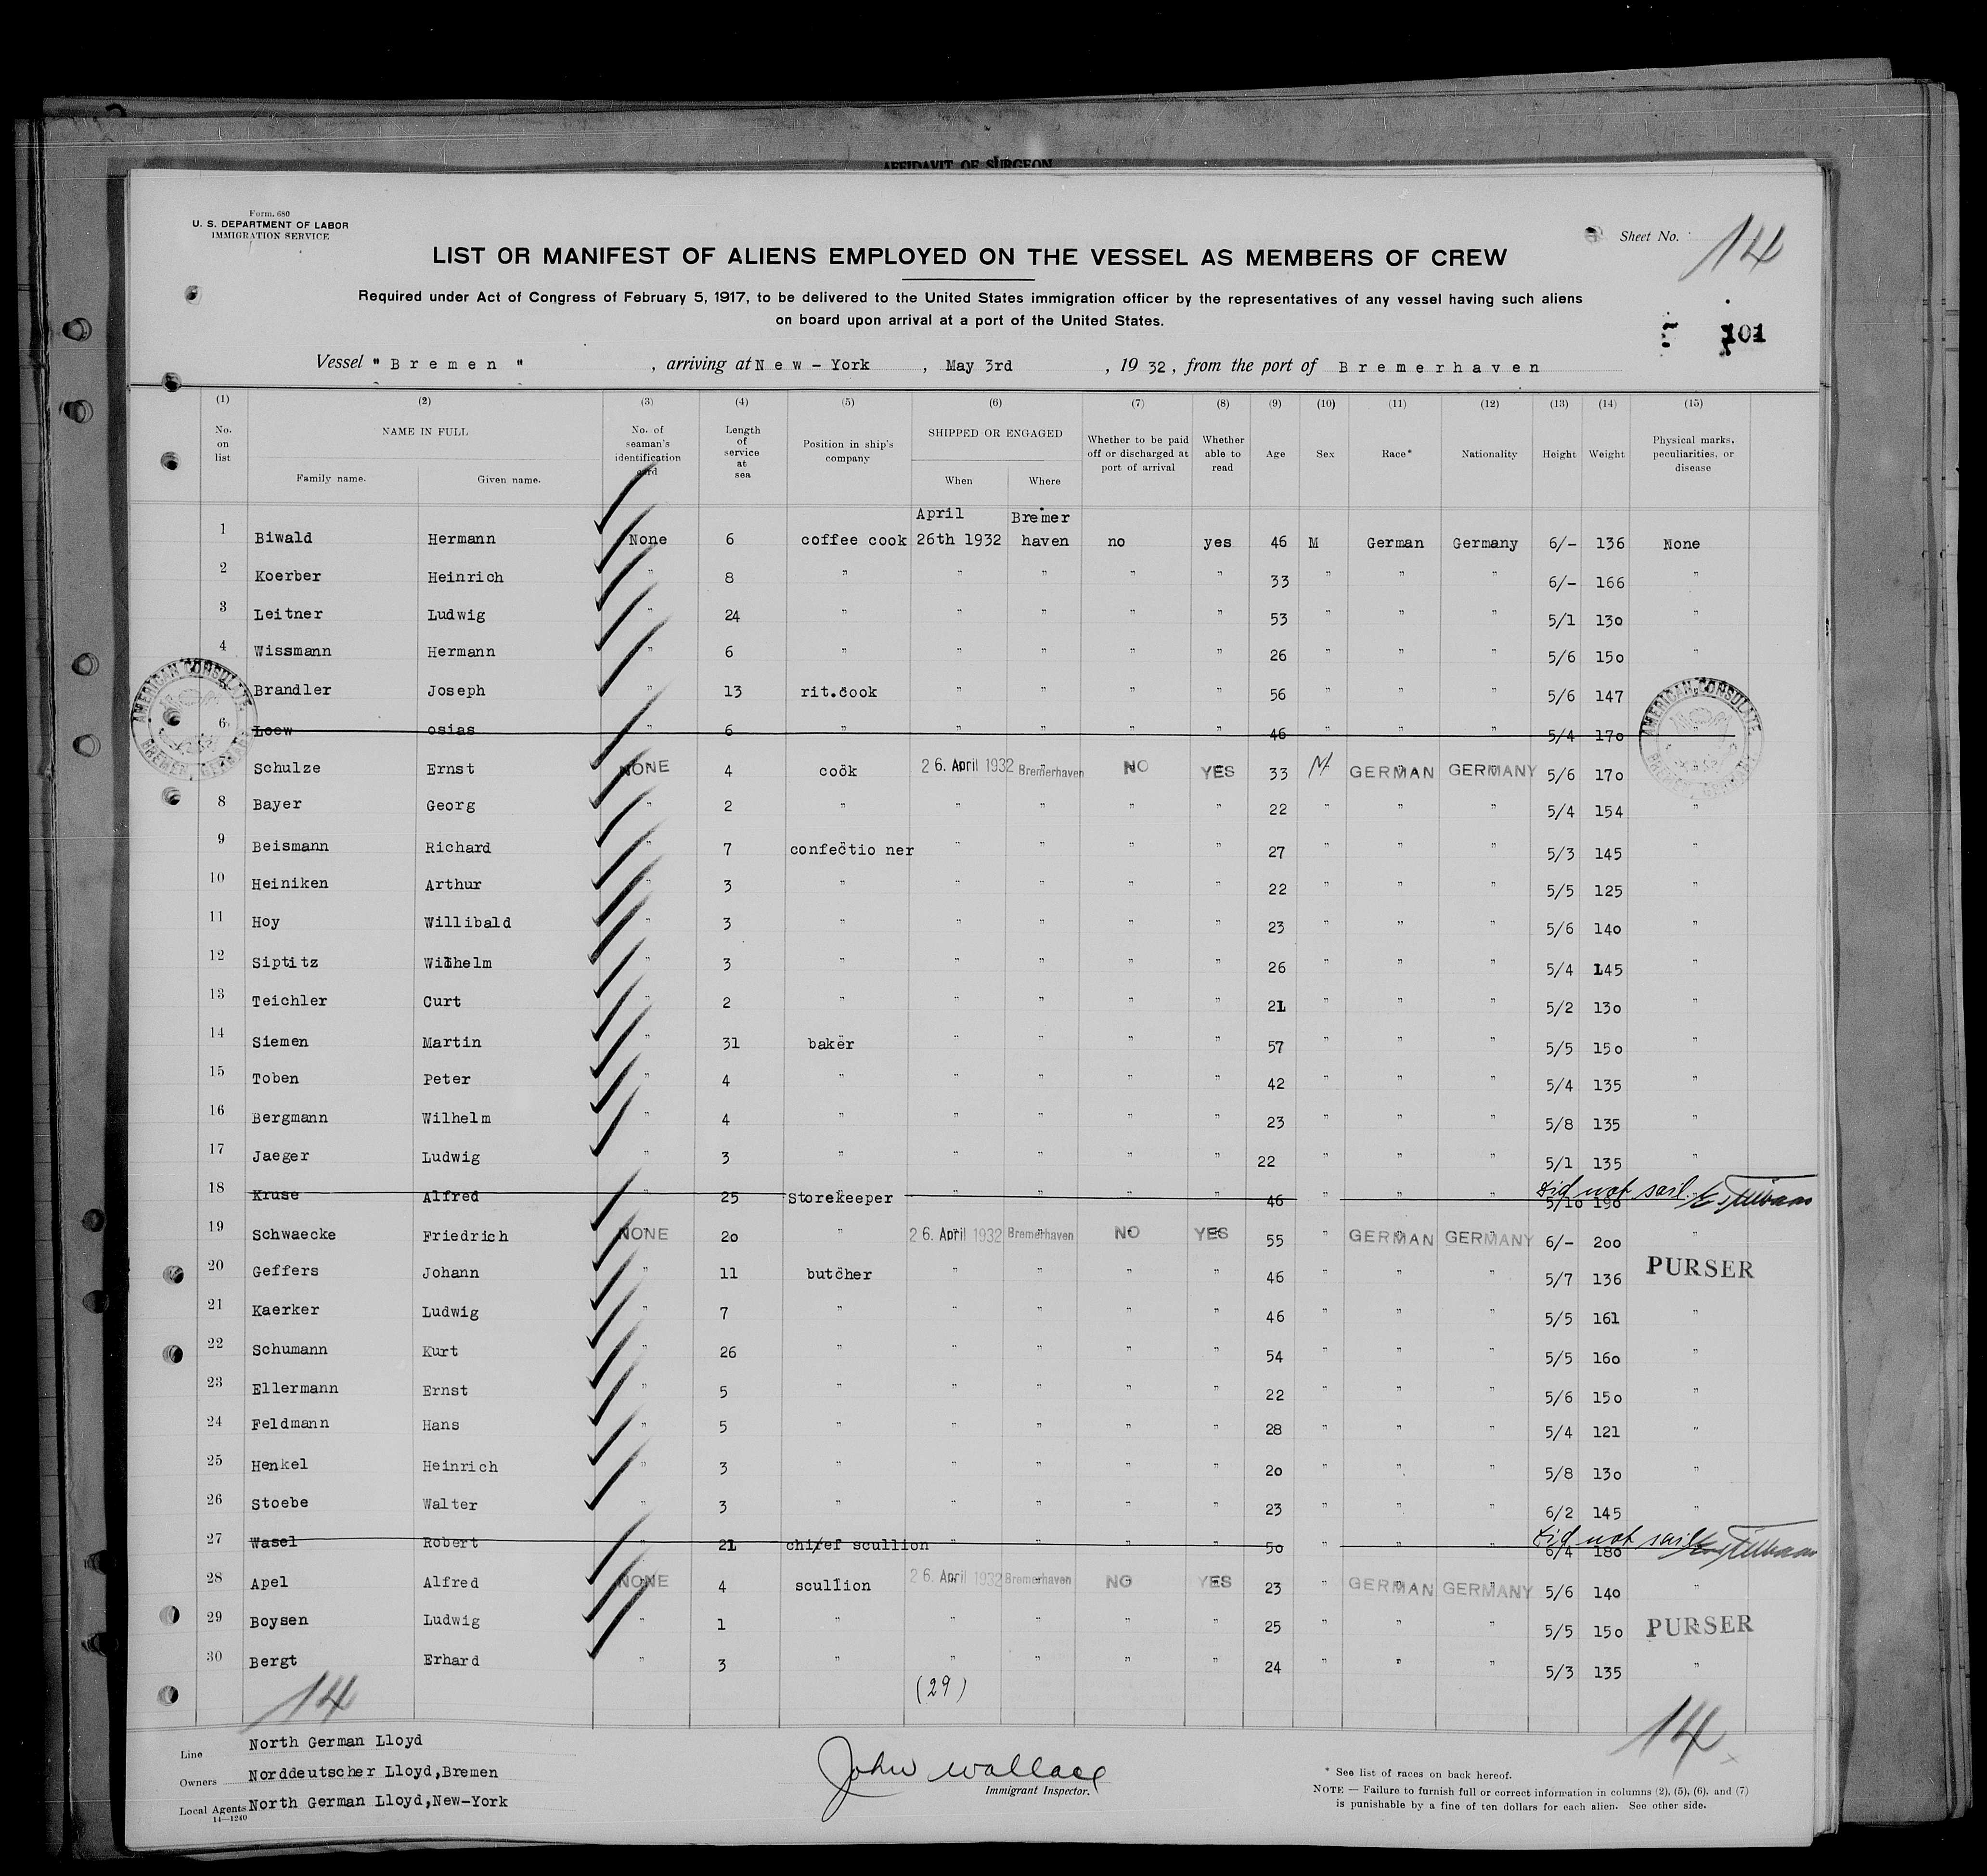 AFFIDAVIT OF SURGEON
Form. 680
U. S. DEPARTMENT OF LABOR
IMMIGRATION SERVICE
Sheet No. 14
LIST OR MANIFEST OF ALIENS EMPLOYED ON THE VESSEL AS MEMBERS OF CREW
Required under Act of Congress of February 5, 1917, to be delivered to the United States immigration officer by the representatives of any vessel having such aliens
on board upon arrival at a port of the United States.
101
Vessel " B r e m e n " , arriving at N e w - York , May 3rd , 19 32 , from the port of B r e m e r h a v e n
(1) (2) (3) (4) (5) (6) (7) (8) (9) (10) (11) (12) (13) (14) (15)
No. on list NAME IN FULL Family name. Given name. No. of seaman's identification card Length of service at sea Position in ship's company SHIPPED OR ENGAGED When Where Whether to be paid off or discharged at port of arrival Whether able to read Age Sex Race* Nationality Height Weight Physical marks, peculiarities, or disease
April Bremer
1 Biwald Hermann None 6 coffee cook 26th 1932 haven no yes 46 M German Germany 6/- 136 None
2 Koerber Heinrich " 8 " " " " " 33 " " " 6/- 166 "
3 Leitner Ludwig " 24 " " " " " 53 " " " 5/1 130 "
4 Wissmann Hermann " 6 " " " " " 26 " " " 5/6 150 "
Brandler Joseph " 13 rit.cook " " " " 56 " " " 5/6 147
6 Loew osias " 6 " " " " " 46 " " " 5/4 170 "
Schulze Ernst NONE 4 cook 26. April 1932 Bremerhaven NO YES 33 M GERMAN GERMANY 5/6 170
8 Bayer Georg " 2 " " " " " 22 " " " 5/4 154 "
9 Beismann Richard " 7 confectio ner " " " " 27 " " " 5/3 145 "
10 Heiniken Arthur " 3 " " " " " 22 " " " 5/5 125 "
11 Hoy Willibald " 3 " " " " " 23 " " " 5/6 140 "
12 Siptitz Wilhelm " 3 " " " " " 26 " " " 5/4 145 "
13 Teichler Curt " 2 " " " " " 21 " " " 5/2 130 "
14 Siemen Martin " 31 baker " " " " 57 " " " 5/5 150 "
15 Toben Peter " 4 " " " " " 42 " " " 5/4 135 "
16 Bergmann Wilhelm " 4 " " " " " 23 " " " 5/8 135 "
17 Jaeger Ludwig " 3 " " " " " 22 " " " 5/1 135 "
18 Kruse Alfred " 25 Storekeeper " " " " 46 " " " 5/10 190 did not sail
19 Schwaecke Friedrich NONE 20 " 26. April 1932 Bremerhaven NO YES 55 " GERMAN GERMANY 6/- 200 "
20 Geffers Johann " 11 butcher " " " " 46 " " " 5/7 136 PURSER
21 Kaerker Ludwig " 7 " " " " " 46 " " " 5/5 161 "
22 Schumann Kurt " 26 " " " " " 54 " " " 5/5 160 "
23 Ellermann Ernst " 5 " " " " " 22 " " " 5/6 150 "
24 Feldmann Hans " 5 " " " " " 28 " " " 5/4 121 "
25 Henkel Heinrich " 3 " " " " " 20 " " " 5/8 130 "
26 Stoebe Walter " 3 " " " " " 23 " " " 6/2 145 "
27 Wasel Robert " 21 chief scullion " " " " 50 " " " 6/4 180 did not sail
28 Apel Alfred NONE 4 scullion 26. April 1932 Bremerhaven NO YES 23 " GERMAN GERMANY 5/6 140 "
29 Boysen Ludwig " 1 " " " " " 25 " " " 5/5 150 PURSER
30 Bergt Erhard " 3 " " " " " 24 " " " 5/3 135 "
AMERICAN CONSULATE BREMEN, GERMANY
AMERICAN CONSULATE BREMEN, GERMANY
(29)
14
14
Line North German Lloyd
Owners Norddeutscher Lloyd,Bremen
Local Agents North German Lloyd,New-York
14—1240
John Wallace
Immigrant Inspector.
* See list of races on back hereof.
NOTE — Failure to furnish full or correct information in columns (2), (5), (6), and (7)
is punishable by a fine of ten dollars for each alien. See other side.